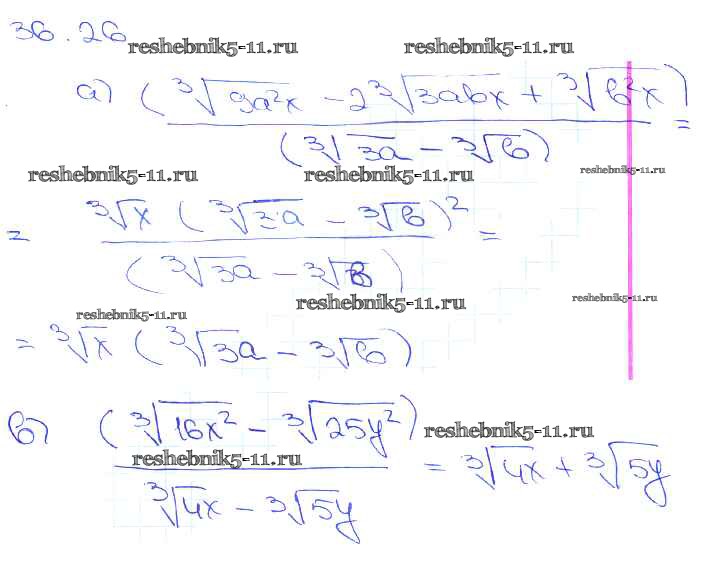 36.26
reshebnik5-11.ru reshebnik5-11.ru
а) (∛9a²x − 2∛3abx + ∛b²x) / (∛3a − ∛b) =
reshebnik5-11.ru reshebnik5-11.ru reshebnik5-11.ru
= ∛x (∛3a − ∛b)² / (∛3a − ∛b) =
reshebnik5-11.ru reshebnik5-11.ru reshebnik5-11.ru
= ∛x (∛3a − ∛b)
в) (∛16x² − ∛25y²) / (∛4x − ∛5y) = ∛4x + ∛5y
reshebnik5-11.ru
reshebnik5-11.ru